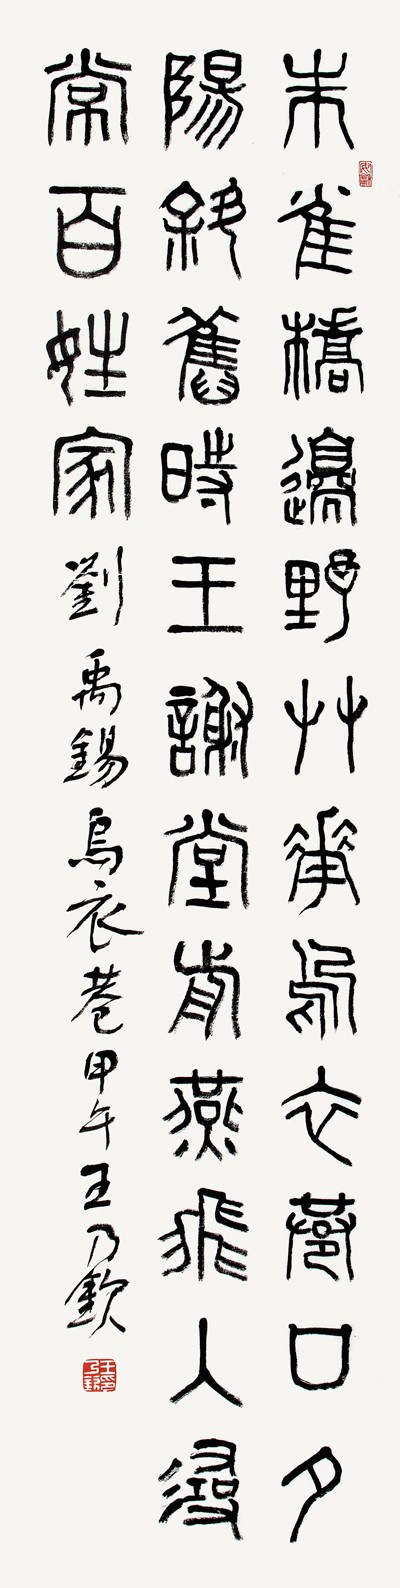 朱雀橋邊野艸華烏衣巷口夕
陽斜舊時王謝堂歬燕飛入尋
常百姓家 劉禹錫烏衣巷甲午王乃欽